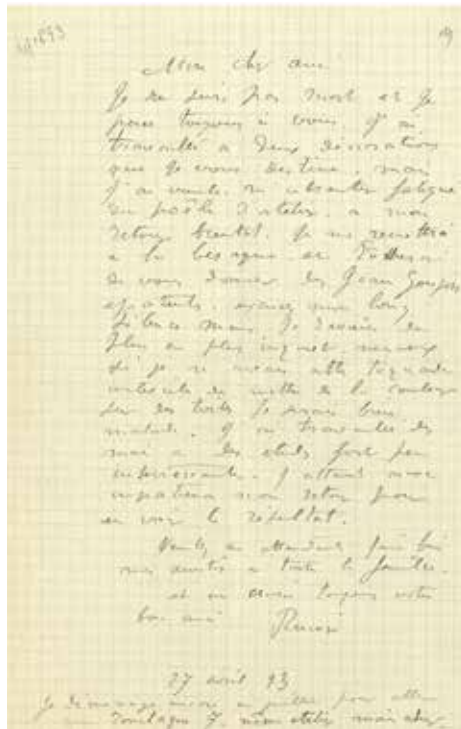 av. 1893
19
Mon cher ami
Je ne suis pas mort et je
pense toujours à vous. J'ai
travaillé a deux décorations
que je vous destine, mais
j'ai voulu m'absenter fatigué
du poêle d'atelier. a mon
retour bientôt. je me remettrai
a la besogne et
de vous donner des Jean Goujon
épatants. excusez mon long
silence mais je deviens de
plus en plus inquiet nerveux
si je n'avais cette
de mettre de la couleur
sur des toiles je serais bien
malade. J'ai travaillé
a des études fort peu
intéressantes. j'attends avec
impatience mon retour pour
en voir le résultat.
Veuillez en attendant faire
mes amitiés a toute la famille.
et me croire toujours votre
bon ami Renoir
27 avril 93
Je déménage encore en juillet pour aller
7. même atelier mais